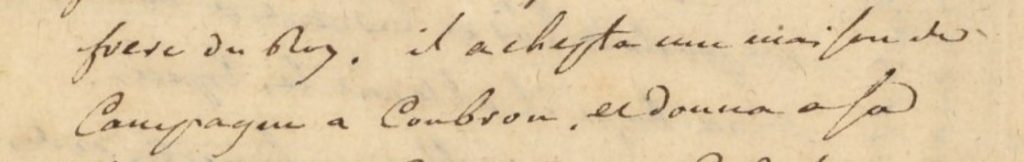 frere du Roy. il achepta une maison de
Campagne a Coubron, et donna a sa